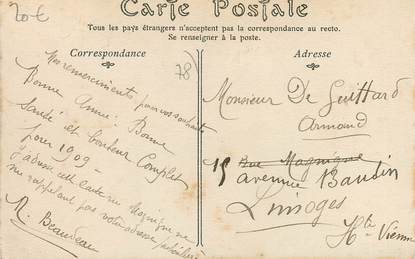 20 €
Carte Postale
Tous les pays étrangers n'acceptent pas la correspondance au recto.
Se renseigner à la poste.
Correspondance
Adresse
78)
Mes remerciments pour vos souhaits
Bonne Année. Bonne
Santé et bonheur Complet
pour 1909 -
J'adresse cette carte au Magnique ne
me rappelant pas votre adresse
M. Beaudeau
Monsieur De Guittard
Armand
15 Rue Magnique
avenue Baudin
Limoges
Hte Vienne